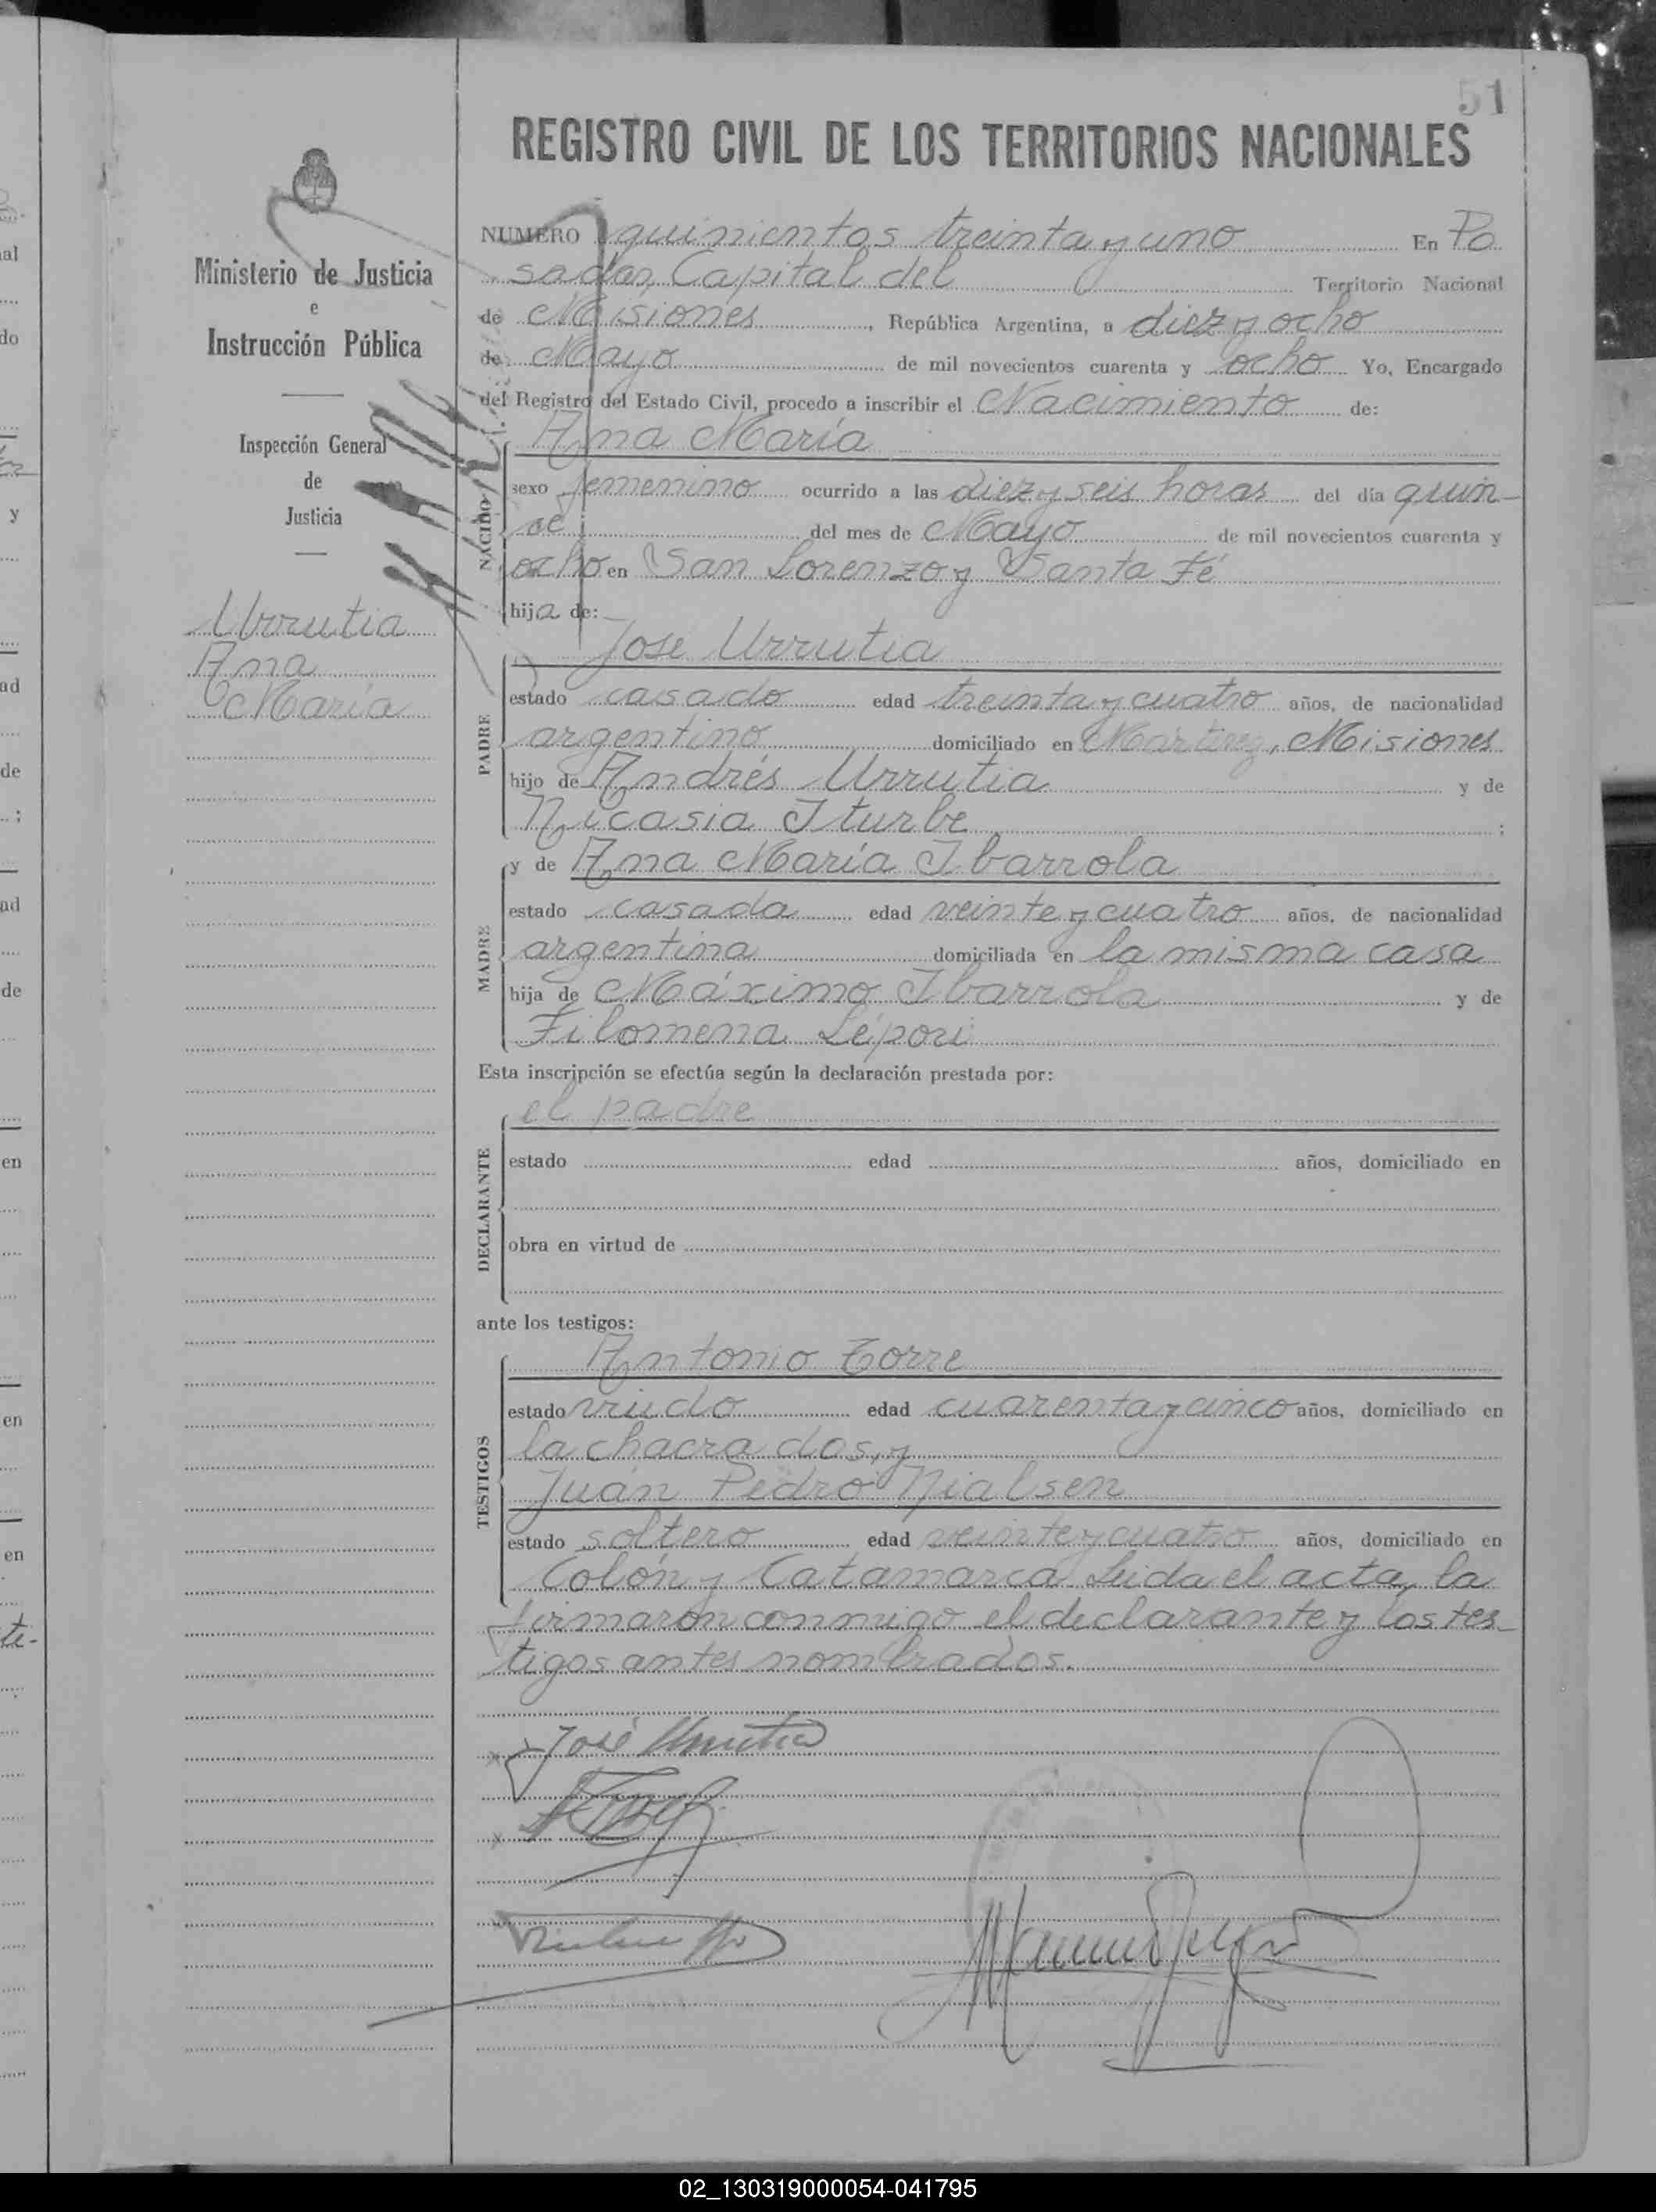 51
REGISTRO CIVIL DE LOS TERRITORIOS NACIONALES
Ministerio de Justicia
e
Instrucción Pública
Inspección General
de
Justicia
Urrutia
Ana
María
NUMERO quinientos treinta y uno En Po
sadas, Capital del Territorio Nacional
de Misiones, República Argentina, a diez y ocho
de Mayo de mil novecientos cuarenta y ocho Yo, Encargado
del Registro del Estado Civil, procedo a inscribir el Nacimiento de:
NACIDO
Ana María
sexo femenino ocurrido a las diez y seis horas del día quin-
ce del mes de Mayo de mil novecientos cuarenta y
ocho en San Lorenzo y Santa Fé
hija de:
PADRE
José Urrutia
estado casado edad treinta y cuatro años, de nacionalidad
argentino domiciliado en Martirez, Misiones
hijo de Andrés Urrutia y de
Nicasia Iturbe ;
MADRE
y de Ana María Ibarrola
estado casada edad veinte y cuatro años, de nacionalidad
argentina domiciliada en la misma casa
hija de Máximo Ibarrola y de
Filomena Lépori
Esta inscripción se efectúa según la declaración prestada por:
DECLARANTE
el padre
estado edad años, domiciliado en
obra en virtud de
ante los testigos:
TESTIGOS
Antonio Torre
estado viudo edad cuarenta y cinco años, domiciliado en
la chacra dos, y
Juan Pedro Nialsen
estado soltero edad veinte y cuatro años, domiciliado en
Colón y Catamarca. Leida el acta, la
firmaron conmigo el declarante y los tes-
tigos antes nombrados.
José Urrutia
02_130319000054-041795